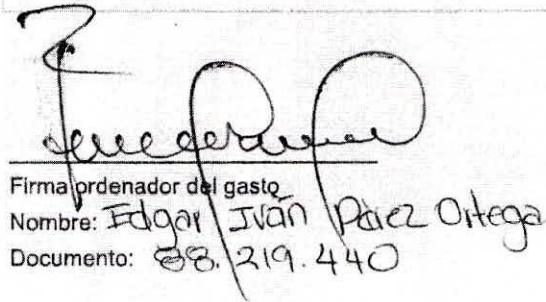 Firma ordenador del gasto
Nombre: Edgar Iván Pérez Ortega
Documento: 88.219.440